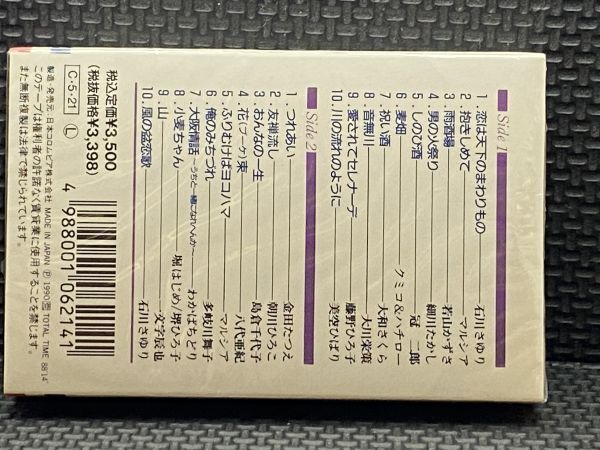 Side 1
1. 恋は天下のまわりもの 石川さゆり
2. 抱きしめて マルシア
3. 雨酒場 若山かずさ
4. 男の火祭り 細川たかし
5. しのび酒 冠 二郎
6. 麦畑 クミコ&ハチロー
7. 祝い酒 大和さくら
8. 音無川 大川栄策
9. 愛されてセレナーデ 藤野ひろ子
10. 川の流れのように 美空ひばり
Side 2
1. つれあい 金田たつえ
2. 友禅流し 朝川ひろこ
3. おんなの一生 島倉千代子
4. 花(ブーケ)束 八代亜紀
5. ふりむけばヨコハマ マルシア
6. 俺のみちづれ 多岐川舞子
7. 大阪情話〜うちと一緒になれへんか〜 わかばちどり
8. 小麦ちゃん 堀はじめ、堺ひろ子
9. 山 一文字辰也
10. 風の盆恋歌 石川さゆり
税込定価¥3,500
(税抜価格¥3,398)
C・5・21 Ⓛ
製造・発売元・日本コロムビア株式会社 MADE IN JAPAN Ⓟ 1990 TOTAL TIME 88'14"
このテープは権利者の許諾なく賃貸業に使用することを禁じます。
また無断複製は法律で禁じられています。
4 988001 062141